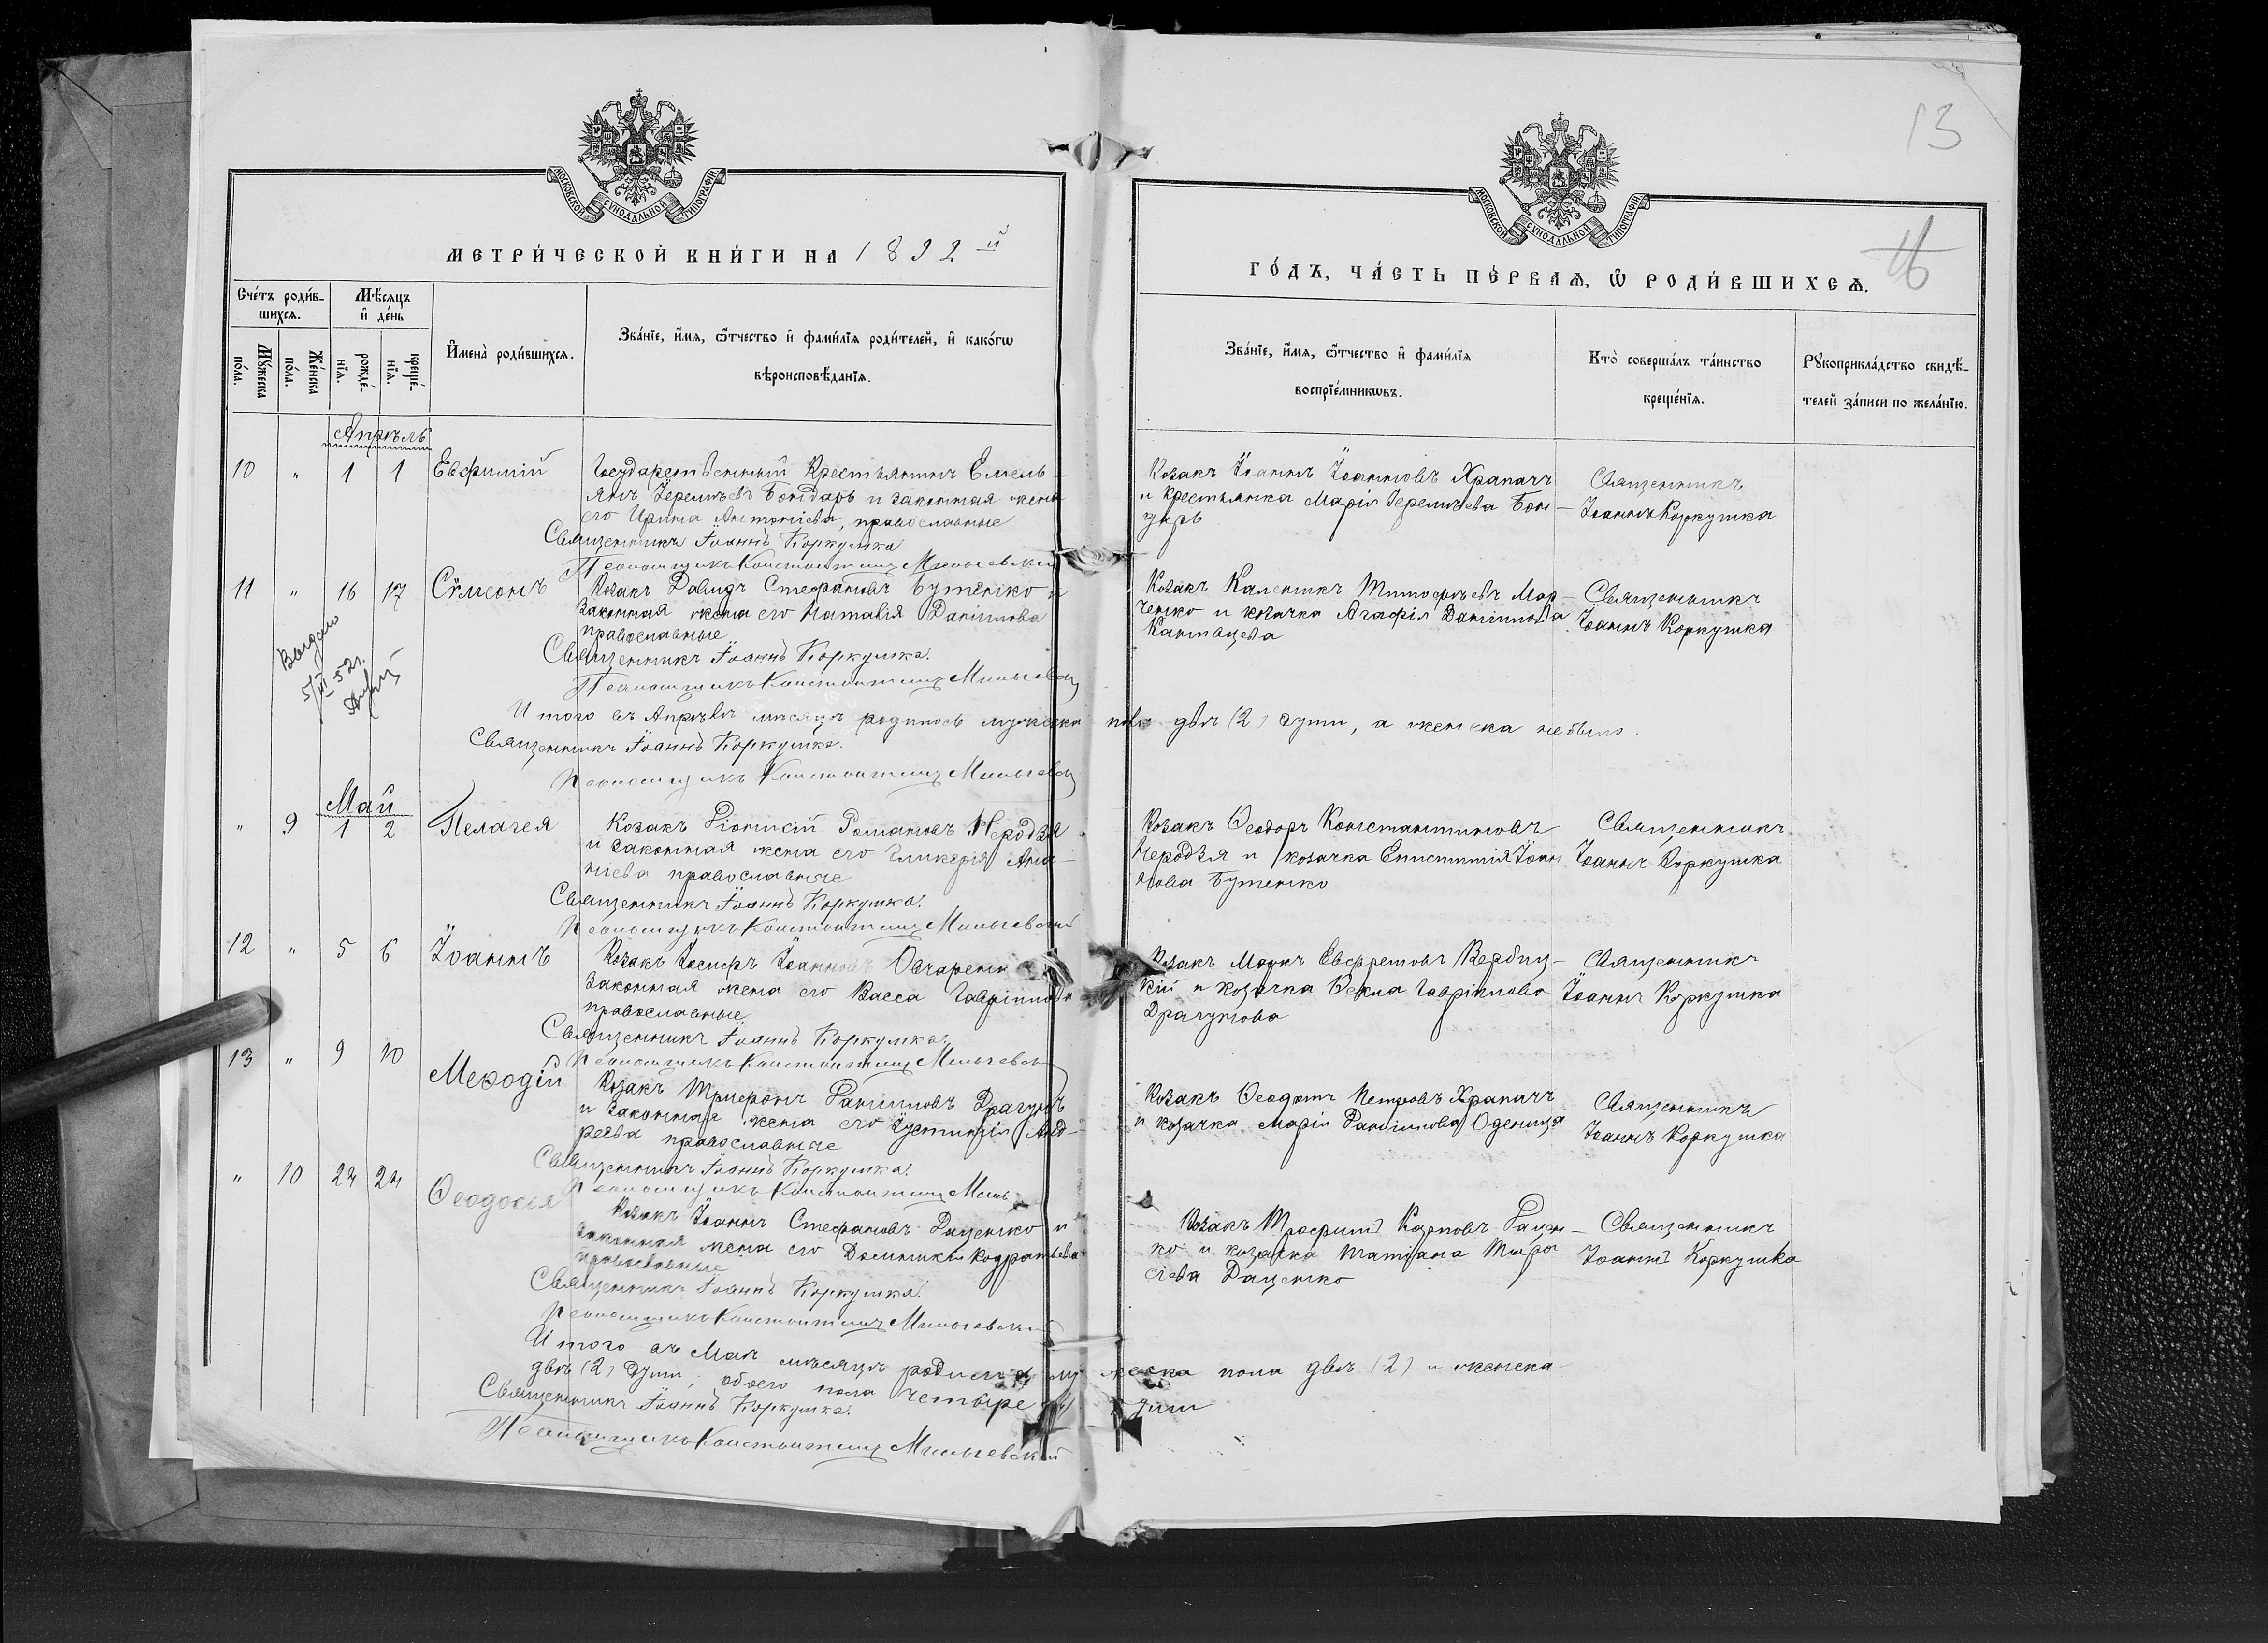 13
МОСКОВСКОЙ СѴНОДАЛЬНОЙ ТИПОГРАФІИ
МОСКОВСКОЙ СѴНОДАЛЬНОЙ ТИПОГРАФІИ
МЕТРИ́ЧЕСКОЙ КНИ́ГИ НА 1892 й
ГО́ДЪ, ЧА́СТЬ ПЕ́РВАѦ, Ѡ҆ РОДИ́ВШИХСѦ.
16
Сче́тъ роди́в-
шихсѧ.
Мѣ́сѧцъ
и҆ де́нь
Мꙋ́жеска
по́ла.
Же́нска
по́ла.
рожде́-
нїѧ.
креще́-
нїѧ.
И҆мена̀ роди́вшихсѧ.
Зва́нїе, и҆́мѧ, ѻ҆́тчество и҆ фами́лїѧ роди́телей, и҆ како́гѡ
вѣроисповѣ́данїѧ.
Зва́нїе, и҆́мѧ, ѻ҆́тчество и҆ фами́лїѧ
воспрїе́мникѡвъ.
Кто̀ соверша́лъ та́инство
креще́нїѧ.
Рꙋкоприкла́дство свидѣ́-
телей за́писи по жела́нїю.
Апрѣль
10 " 1 1 Евфимій
Государственный Крестьянинъ Емель-
янъ Іереміевъ Бондарь и законная жена
его Ирина Антоніева, православные
Священникъ Іоаннъ Коркушка
Псаломщикъ Константинъ
Козакъ Іоаннъ Іоанновъ Храпачъ
и крестьянка Марія Іереміева Бон-
дарь
Священникъ
Іоаннъ Коркушка
11 " 16 17 Сѵмеонъ
Козакъ Давидъ Стефановъ Бутенко и
законная жена его Наталія Даніилова
православные
Священникъ Іоаннъ Коркушка.
Псаломщикъ Константинъ
Козакъ Калиникъ Тимофѣевъ Мар-
ченко и козачка Агафія Даніилова
Священникъ
Іоаннъ Коркушка
Выдано
5/III 52г.
Итого въ Апрѣлѣ мѣсяцѣ родилось мужеска пола двѣ (2) души, а женска небыло.
Священникъ Іоаннъ Коркушка.
Псаломщикъ Константинъ
Май
" 9 1 2 Пелагея
Козакъ Діонисій Романовъ Неродзя
и законная жена его Гликерія Ана-
ніева православные
Священникъ Іоаннъ Коркушка.
Псаломщикъ Константинъ
Козакъ Ѳеодоръ Константиновъ
Неродзя и козачка Епистимія Іоан-
нова Бутенко
Священникъ
Іоаннъ Коркушка
12 " 5 6 Іоаннъ
Козакъ Іосифъ Іоанновъ Овчаренко
законная жена его Васса Гавріилова
православные
Священникъ Іоаннъ Коркушка.
Псаломщикъ Константинъ
Козакъ Маркъ Евфремовъ Вербиц-
кій и козачка Ѳекла Гавріилова
Драгунова
Священникъ
Іоаннъ Коркушка
13 " 9 10 Меѳодій
Козакъ Трифонъ Даніиловъ Драгунъ
и законная жена его Іустинія Анд-
реева православные
Священникъ Іоаннъ Коркушка.
Псаломщикъ Константинъ
Козакъ Ѳеодотъ Петровъ Храпачъ
и козачка Марія Даніилова Оденица
Священникъ
Іоаннъ Коркушка
" 10 24 24 Ѳеодосія
Козакъ Іоаннъ Стефановъ Даценко и
законная жена его Домникія Кодратьева
православные
Священникъ Іоаннъ Коркушка.
Псаломщикъ Константинъ
Козакъ Трофимъ Карповъ Дацен-
ко и козачка Татіана
Даценко
Священникъ
Іоаннъ Коркушка
Итого въ Маѣ мѣсяцѣ родилось мужеска пола двѣ (2) и женска
двѣ (2) души, обоего пола четыре души
Священникъ Іоаннъ Коркушка.
Псаломщикъ Константинъ